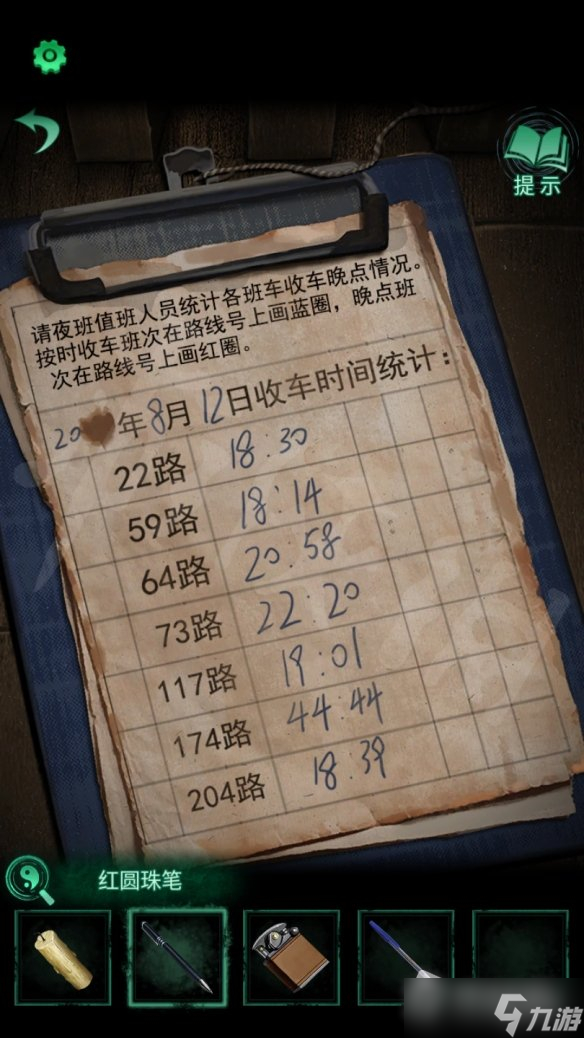 提示
请夜班值班人员统计各班车收车晚点情况。
按时收车班次在路线号上画蓝圈，晚点班
次在路线号上画红圈。
20 年8月12日收车时间统计：
22路 18:30
59路 18:14
64路 20:58
73路 22:20
117路 19:01
174路 44:44
204路 18:39
红圆珠笔
九游